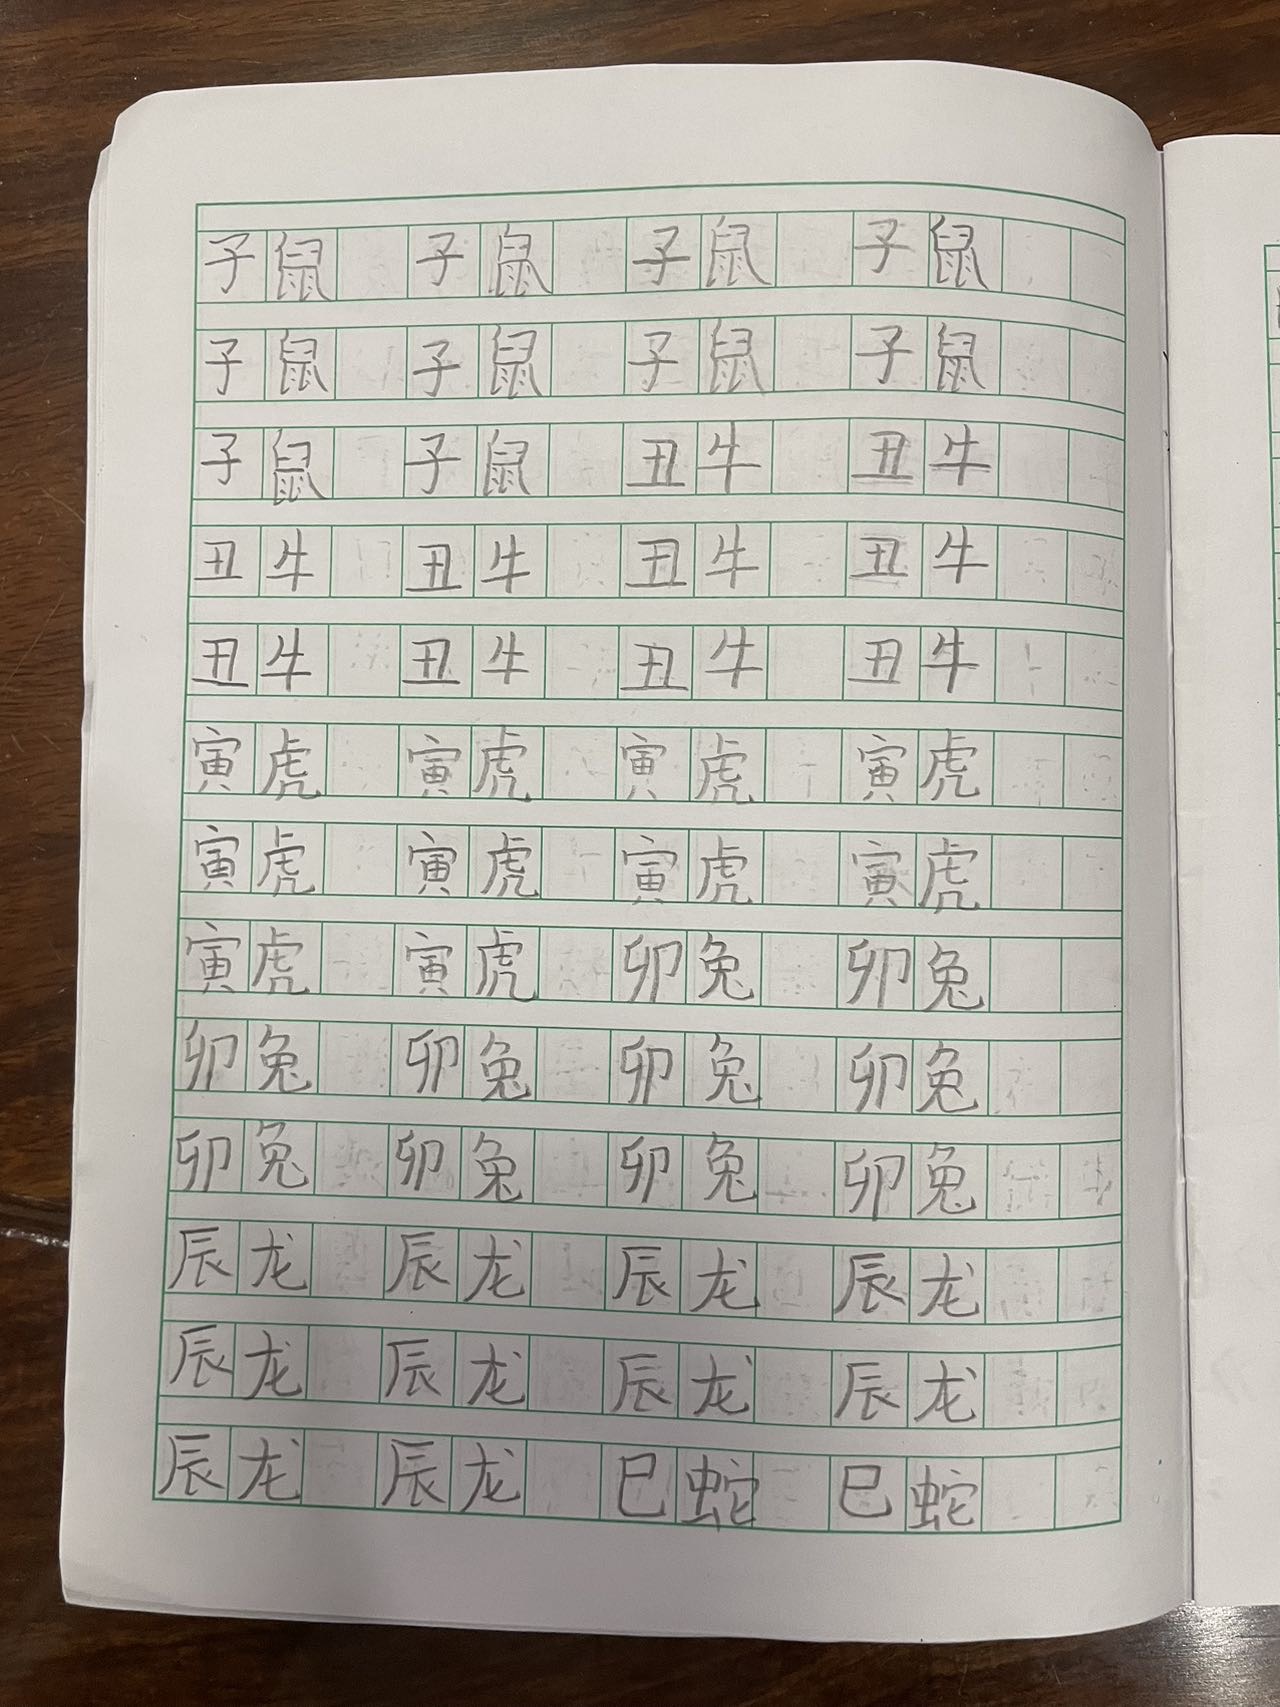 子鼠 子鼠 子鼠 子鼠
子鼠 子鼠 子鼠 子鼠
子鼠 子鼠 丑牛 丑牛
丑牛 丑牛 丑牛 丑牛
丑牛 丑牛 丑牛 丑牛
寅虎 寅虎 寅虎 寅虎
寅虎 寅虎 寅虎 寅虎
寅虎 寅虎 卯兔 卯兔
卯兔 卯兔 卯兔 卯兔
卯兔 卯兔 卯兔 卯兔
辰龙 辰龙 辰龙 辰龙
辰龙 辰龙 辰龙 辰龙
辰龙 辰龙 巳蛇 巳蛇